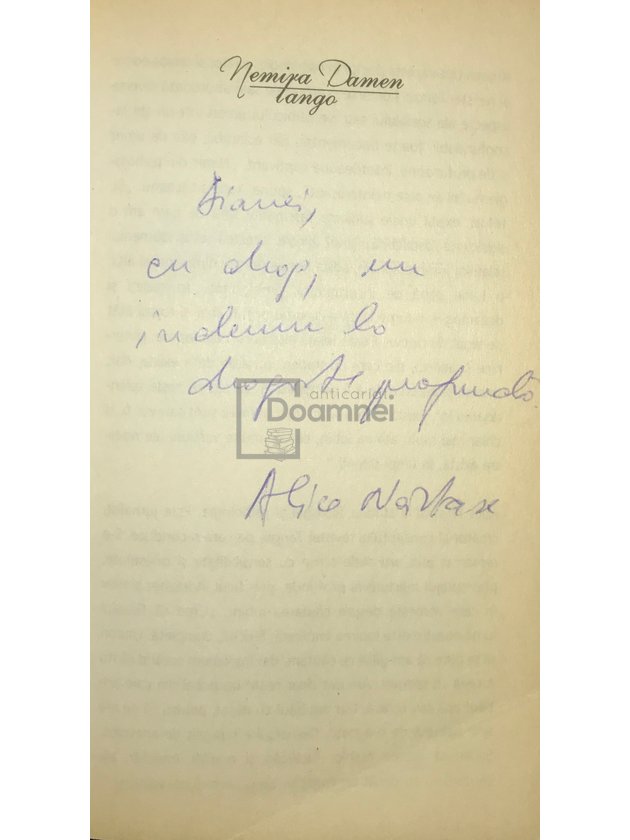 Nemira Damen
tango
Dianei,
cu drag, un
îndemn la
dragoste profundă.
anticariat
Doamnei
Alice Năstase